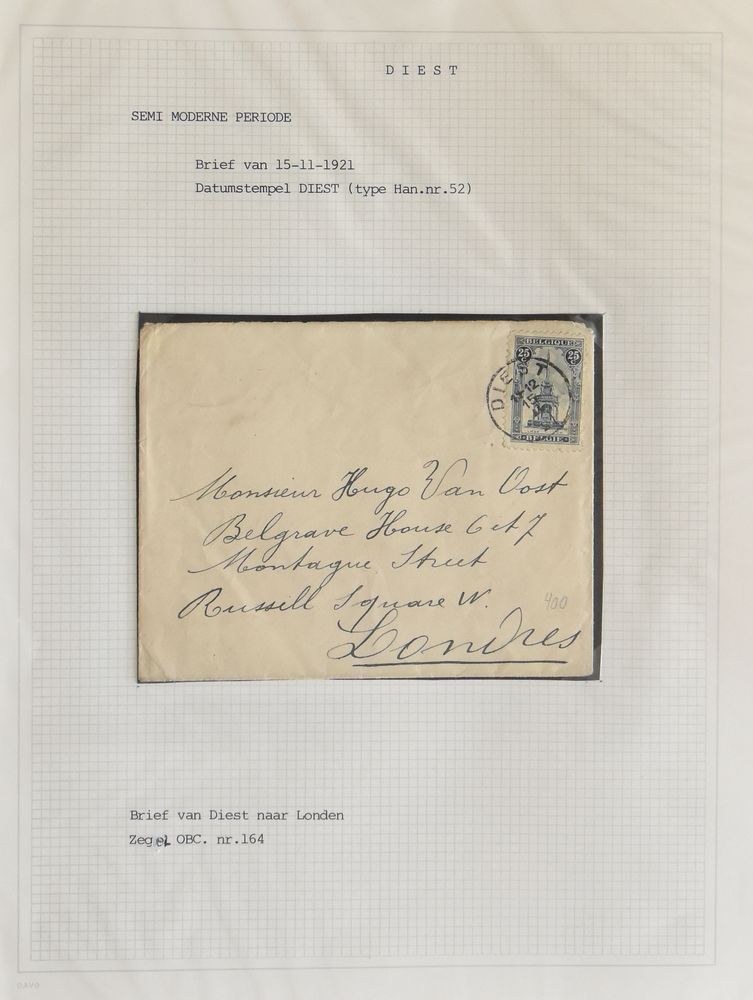 D I E S T
SEMI MODERNE PERIODE
Brief van 15-11-1921
Datumstempel DIEST (type Han.nr.52)
BELGIQUE
25 25
DIEST
12
15
BELGIE
Monsieur Hugo Van Oost
Belgrave House 6 et 7
Montague Street
Russill Square W.
400
Londres
Brief van Diest naar Londen
Zegel OBC. nr.164
DAVO